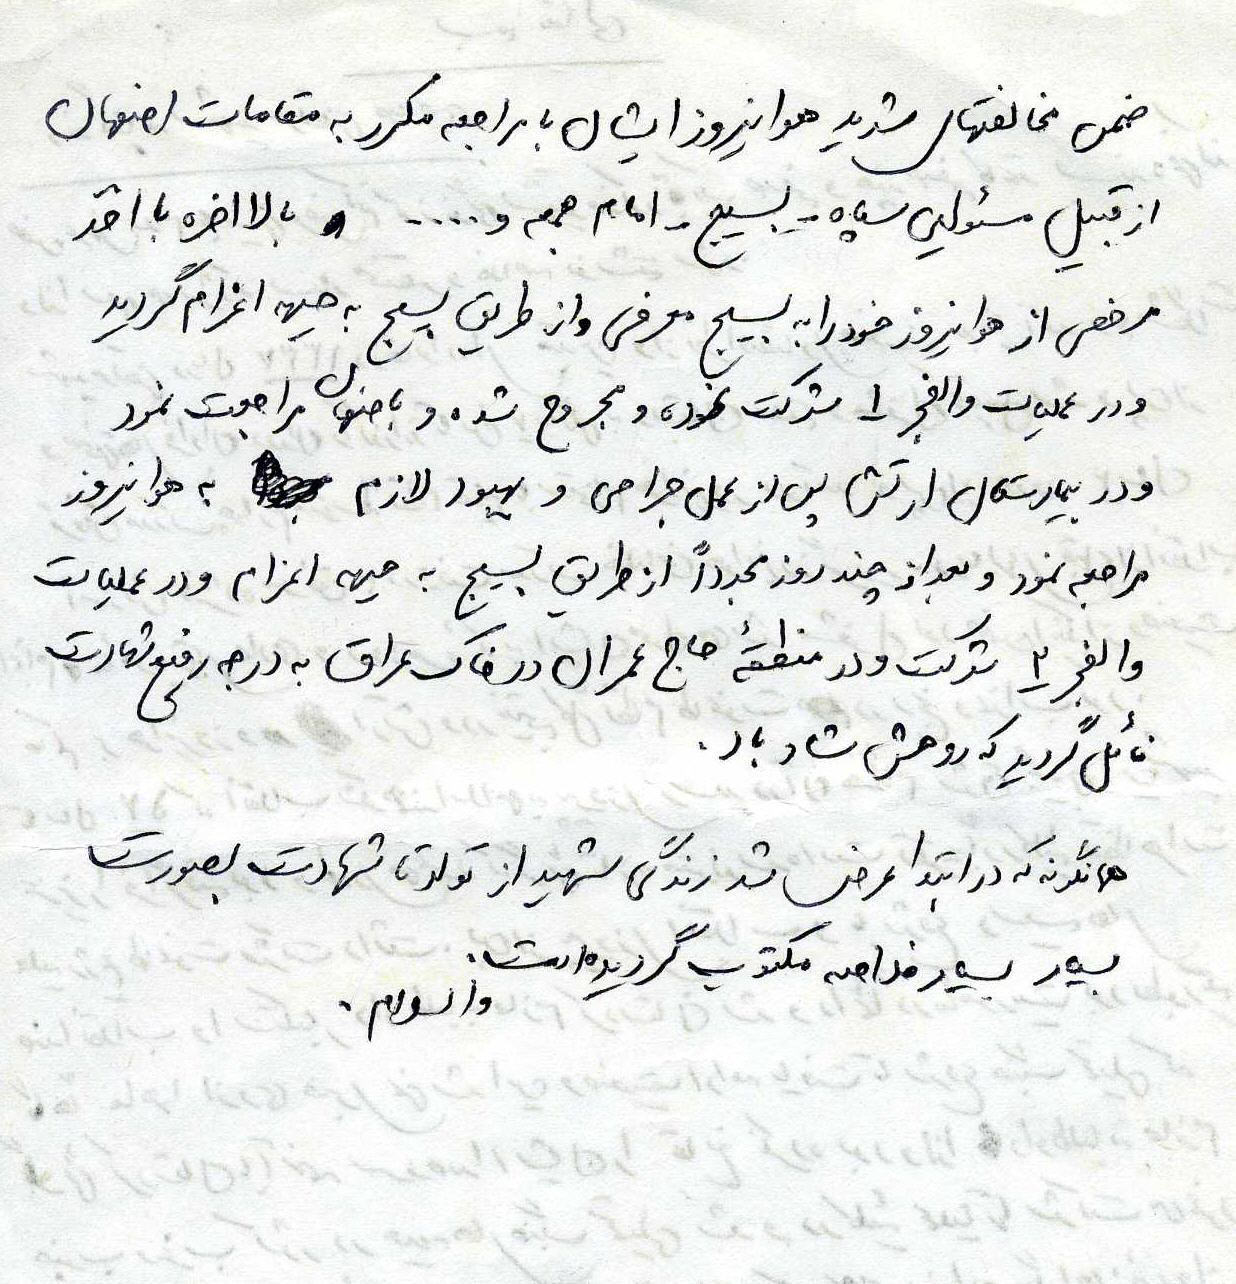 ضمن مخالفتهای شدید هوانیروز ایشان با مراجعه مکرر به مقامات اصفهان
از قبیل مسئولین سپاه - بسیج - امام جمعه و ..... و بالااخره با اخذ
مرخصی از هوانیروز خود را به بسیج معرفی و از طریق بسیج به جبهه اعزام گردید
و در عملیات والفجر ۱ شرکت نموده و مجروح شده و باصفهان مراجعت نمود
و در بیمارستان ارتش پس از عمل جراحی و بهبود لازم به هوانیروز
مراجعه نمود و بعد از چند روز مجدداً از طریق بسیج به جبهه اعزام و در عملیات
والفجر ۲ شرکت و در منطقهٔ حاج عمران در خاک عراق به درجه رفیع شهادت
نائل گردید که روحش شاد باد.
همانگونه که در ابتدا عرض شد زندگی شهید از تولد تا شهادت بصورت
بسیار بسیار خلاصه مکتوب گردیده است.
والسلام.